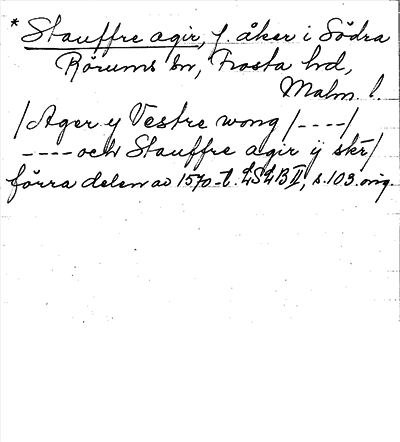 * Stauffre agir, f. åker i Södra
Rörums sn, Frosta hd,
Malm. l.
/Ager y Vestre wong/----/
----och Stauffre agir ÿ skr/
förra delen av 1570-t. LSLB II, s. 103. orig.